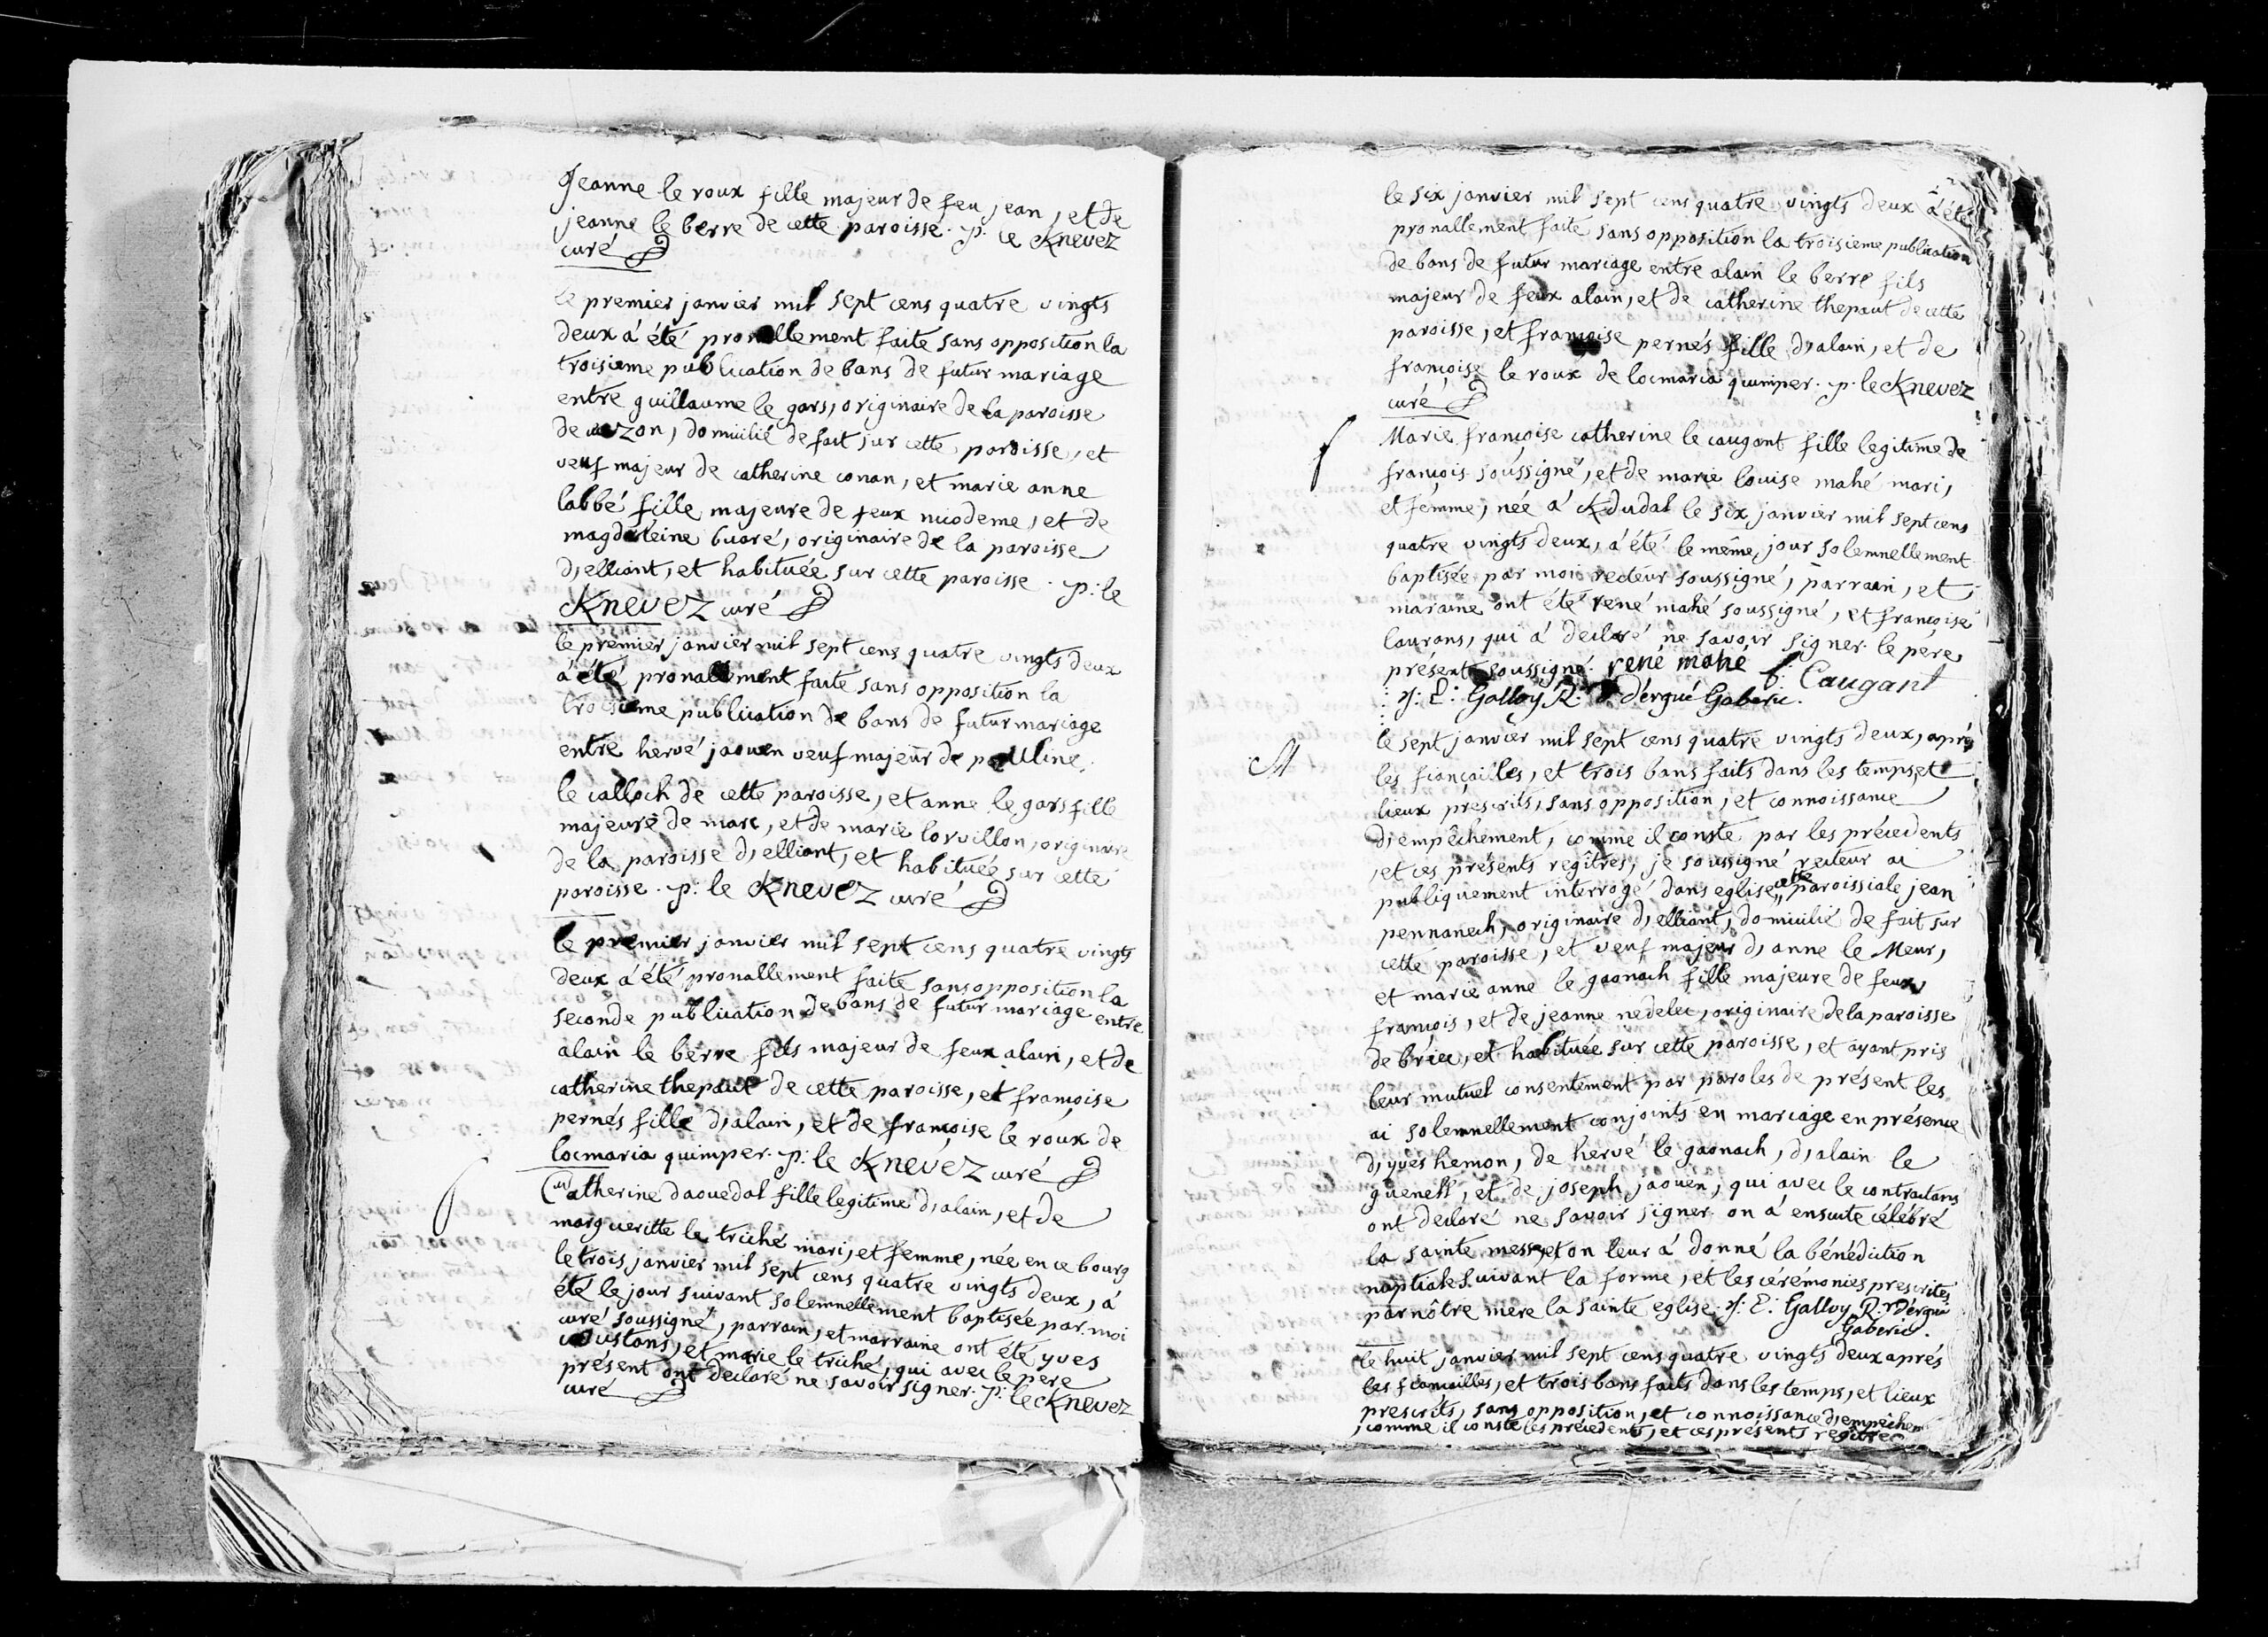 Jeanne le roux fille majeur de feu jean, et de
jeanne le berre de cette paroisse. p: le Knevez
curé
le premier janvier mil sept cens quatre vingts
deux á été pronallement faite sans opposition la
troisieme publication de bans de futur mariage
entre guillaume le gars, originaire de la paroisse
de cuzon, domicilié de fait sur cette paroisse, et
veuf majeur de catherine conan, et marie anne
labbé fille majeure de feux nicodeme, et de
magdeleine buaré, originaire de la paroisse
d,elliant, et habituée sur cette paroisse. p: le
Knevez curé
le premier janvier mil sept cens quatre vingts deux
á été pronallement faite sans opposition la
troisieme publication de bans de futur mariage
entre hervé jaouen veuf majeur de pauline
le calloch de cette paroisse, et anne le gars fille
majeure de marc, et de marie lorvillon, originaire
de la paroisse d,elliant, et habituée sur cette
paroisse. p: le Knevez curé
le premier janvier mil sept cens quatre vingts
deux á été pronallement faite sans opposition la
seconde publication de bans de futur mariage entre
alain le berre fils majeur de feux alain, et de
catherine thepaut de cette paroisse, et françoise
pernés fille d,alain, et de françoise le roux de
locmaria quimper. p: le Knevez curé
Catherine daouedal fille legitime d,alain, et de
margueritte le triché mari, et femme, née en ce bourg
le trois janvier mil sept cens quatre vingts deux, á
été le jour suivant solemnellement baptisée par moi
curé soussigné, parrain, et marraine ont été yves
coustans, et marie le triché, qui avec le pere
présent ont declaré ne savoir signer. p: le Knevez
curé
le six janvier mil sept cens quatre vingts deux á été
pronallement faite sans opposition la troisieme publication
de bans de futur mariage entre alain le berre fils
majeur de feux alain, et de catherine thepaut de cette
paroisse, et françoise pernés fille d,alain, et de
françoise le roux de locmaria quimper. p: le Knevez
curé
Marie françoise catherine le caugant fille legitime de
françois soussigné, et de marie louise mahé mari,
et femme, née á Kdudal le six janvier mil sept cens
quatre vingts deux, á été le même jour solemnellement
baptisée par moi recteur soussigné, parrain, et
maraine ont été rené mahé soussigné, et françoise
laurans, qui á declaré ne savoir signer. le pére
présent soussigné. rené mahé f: Caugant
: j: E: Galloy R: d'ergué Gaberic.
M le sept janvier mil sept cens quatre vingts deux, aprés
les fiançailles, et trois bans faits dans les temps, et
lieux prescrits, sans opposition, et connoissance
d,empêchement, comme il conste par les précedents
, et ces présents regîtres, je soussigné recteur ai
publiquement interrogé dans cette eglise paroissiale jean
pennanech, originaire d,elliant, domicilié de fait sur
cette paroisse, et veuf majeur d,anne le Meur,
et marie anne le gaonach fille majeure de feux
françois, et de jeanne nedelec, originaire de la paroisse
de briec, et habituée sur cette paroisse, et ayant pris
leur mutuel consentement par paroles de présent les
ai solemnellement conjoints en mariage en présence
d,yves hemon, de hervé le gaonach, d,alain le
guenell, et de joseph jaouen, qui avec le contractans
ont declaré ne savoir signer. on á ensuite célébré
la sainte messe, et on leur á donné la bénédiction
nuptiale suivant la forme, et les cérémonies prescrites
par nôtre mere la sainte eglise. j: E: Galloy R.r d'ergué
Gaberic.
le huit janvier mil sept cens quatre vingts deux aprés
les fiançailles, et trois bans faits dans les temps, et lieux
prescrits, sans opposition, et connoissance d,empêchem
, comme il conste les précedents, et ces présents regîtres